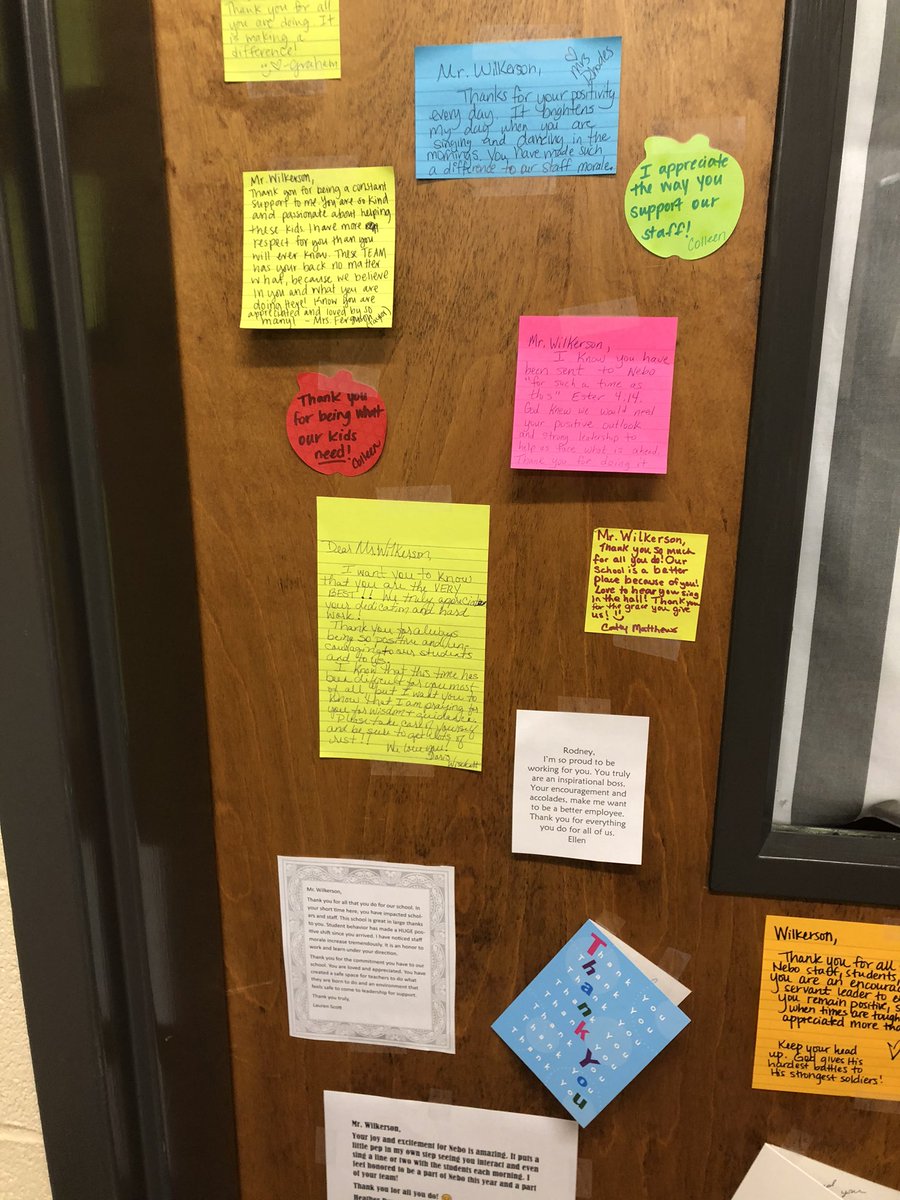 Thank you for all
you are doing. It
is making a
difference!
-Graham
Mr. Wilkerson,
Mrs
Rhodes
Thanks for your positivity
every day. It brightens
my day when you are
singing and dancing in the
mornings. You have made such
a difference to our staff morale.
I appreciate
the way you
support our
staff!
Colleen
Mr. Wilkerson,
Thank you for being a constant
support to me. You are so kind
and passionate about helping
these kids. I have more
respect for you than you
will ever know. These TEAM
has your back no matter
what, because we believe
in you and what you are
doing Here! Know you are
appreciated and loved by so
many! - Mrs.
Mr. Wilkerson,
I know you have
been sent to Nebo
"for such a time as
this" Ester 4:14.
God knew we would need
your positive outlook
and strong leadership to
help us face what is ahead.
Thank you for doing it
Thank you
for being what
our kids
need!
Colleen
Dear Mr. Wilkerson,
I want you to know
that you are the VERY
BEST!! We truly appreciate
your dedication and hard
work!
Thank you for always
being so positive and en-
couraging to our students
and to us.
I know that this time has
been difficult for you most
of all but I want you to
know that I am praying for
you for wisdom + guidance.
Please take care of yourself
and be sure to get lots of
rest!!
We love you!
Mr. Wilkerson,
Thank you so much
for all you do! Our
School is a better
place because of you!
Love to hear you sing
in the hall! Thank you
for the grace you give
us!
Matthews
Rodney,
I'm so proud to be
working for you. You truly
are an inspirational boss.
Your encouragement and
accolades, make me want
to be a better employee.
Thank you for everything
you do for all of us.
Ellen
Mr. Wilkerson,
Thank you for all that you do for our school. In
your short time here, you have impacted schol-
ers and staff. This school is great in large thanks
to you. Student behavior has made a HUGE pos-
itive shift since you arrived. I have noticed staff
morale increase tremendously. It is an honor to
work and learn under your direction.
Thank you for the commitment you have to our
school. You are loved and appreciated. You have
created a safe space for teachers to do what
they are born to do and an environment that
feels safe to come to leadership for support.
Thank you truly,
Lauren Scott
Thank You
Thank You
Thank You
Thank You
Thank You
Thank You
Wilkerson,
Thank you for all
Nebo staff, students,
you are an encourag
servant leader to e
you remain positive, s
when times are tough
appreciated more tha
Keep your head
up. God gives His
hardest battles to
His strongest soldiers!
Mr. Wilkerson,
Your joy and excitement for Nebo is amazing. It puts a
little pep in my own step seeing you interact and even
sing a line or two with the students each morning. I
feel honored to be a part of Nebo this year and a part
of your team!
Thank you for all you do!
Heather
you